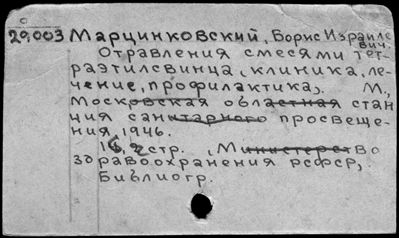 29,003 Марцинковский, Борис Израиле
вич.
Отравления смесями тет-
раэтилсвинца, (клиника, ле-
чение, профилактика). М.,
Московская областная стан
ция санитарного просвеще-
ния, 1946.
16,2 стр. (Министерство
здравоохранения РСФСР,
Библиогр.